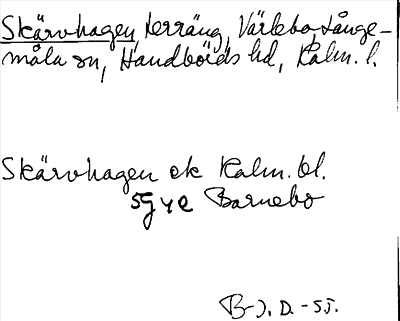 Skärvhagen, terräng, Värlebo, Långe-
måla sn, Handbörds hd, Kalm. l.
Skärvhagen ek Kalm. bl.
5G4e Barnebo
B-J. D. -55.